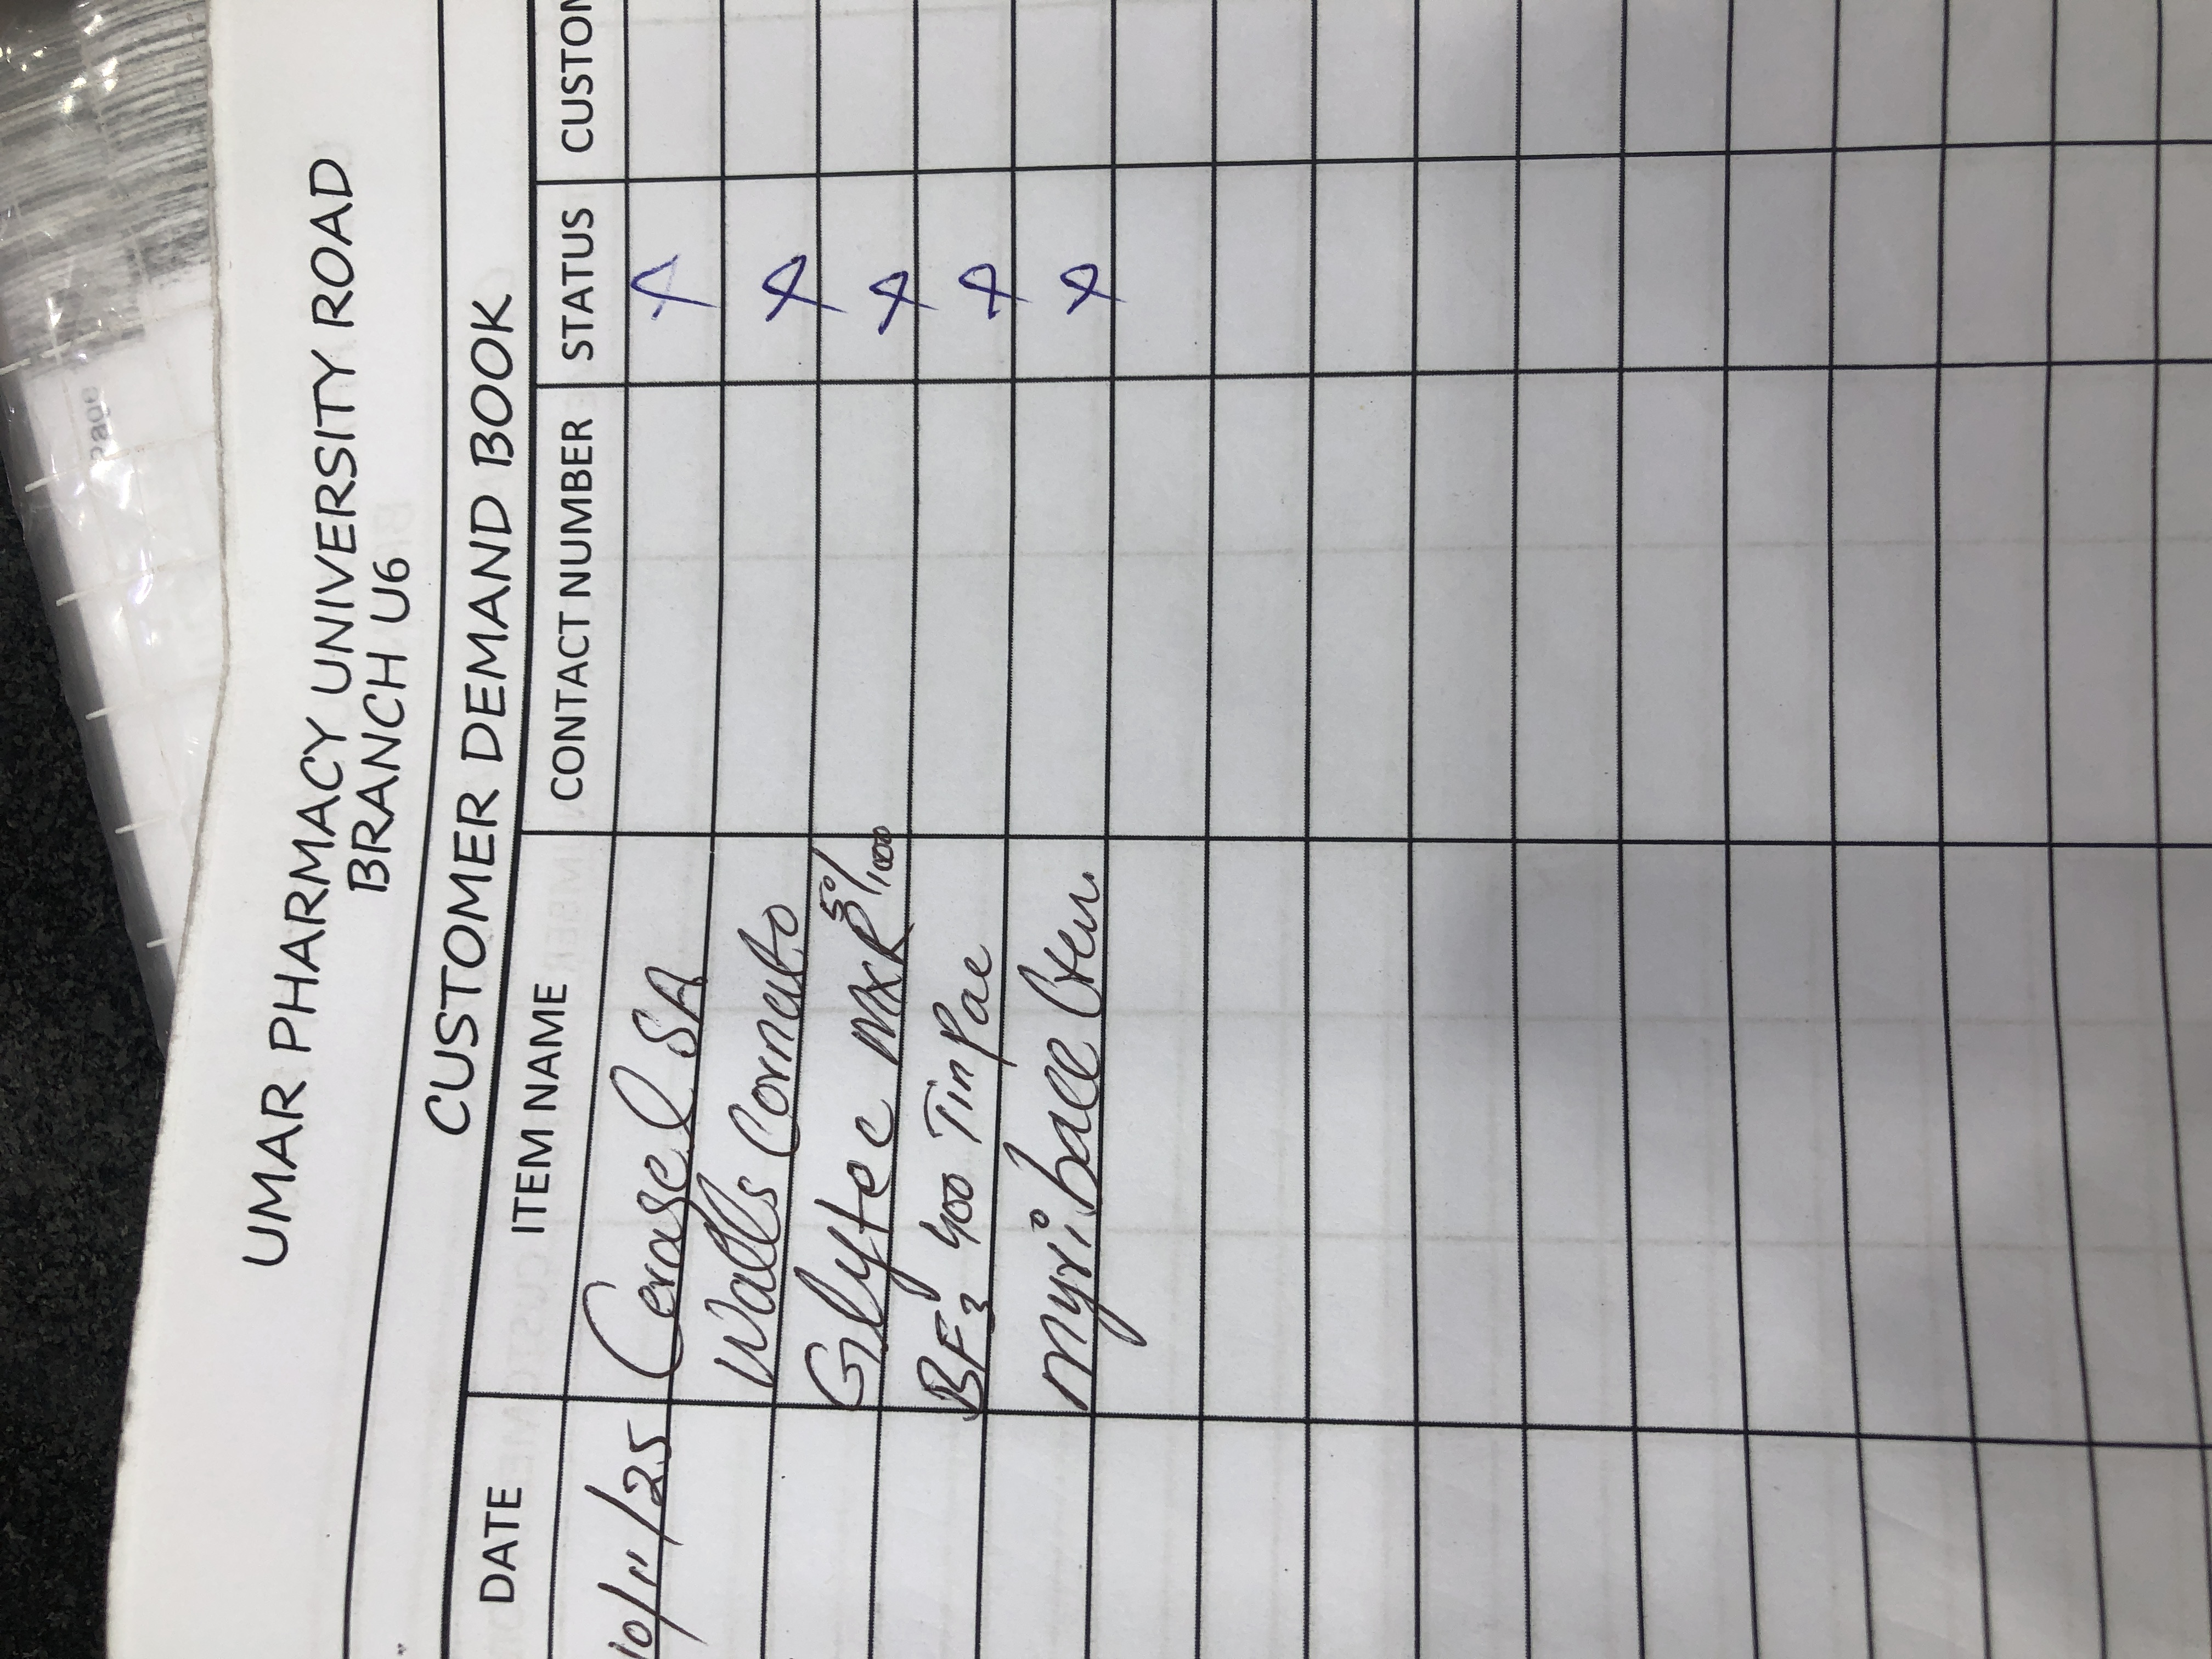 UMAR PHARMACY UNIVERSITY ROAD
BRANCH U6
CUSTOMER DEMAND BOOK
DATE ITEM NAME CONTACT NUMBER STATUS CUSTOM
10/11/25 SA
Walls Cornato
Glytec MXR 5%/1000
BF3 400 Tin Pac
Page